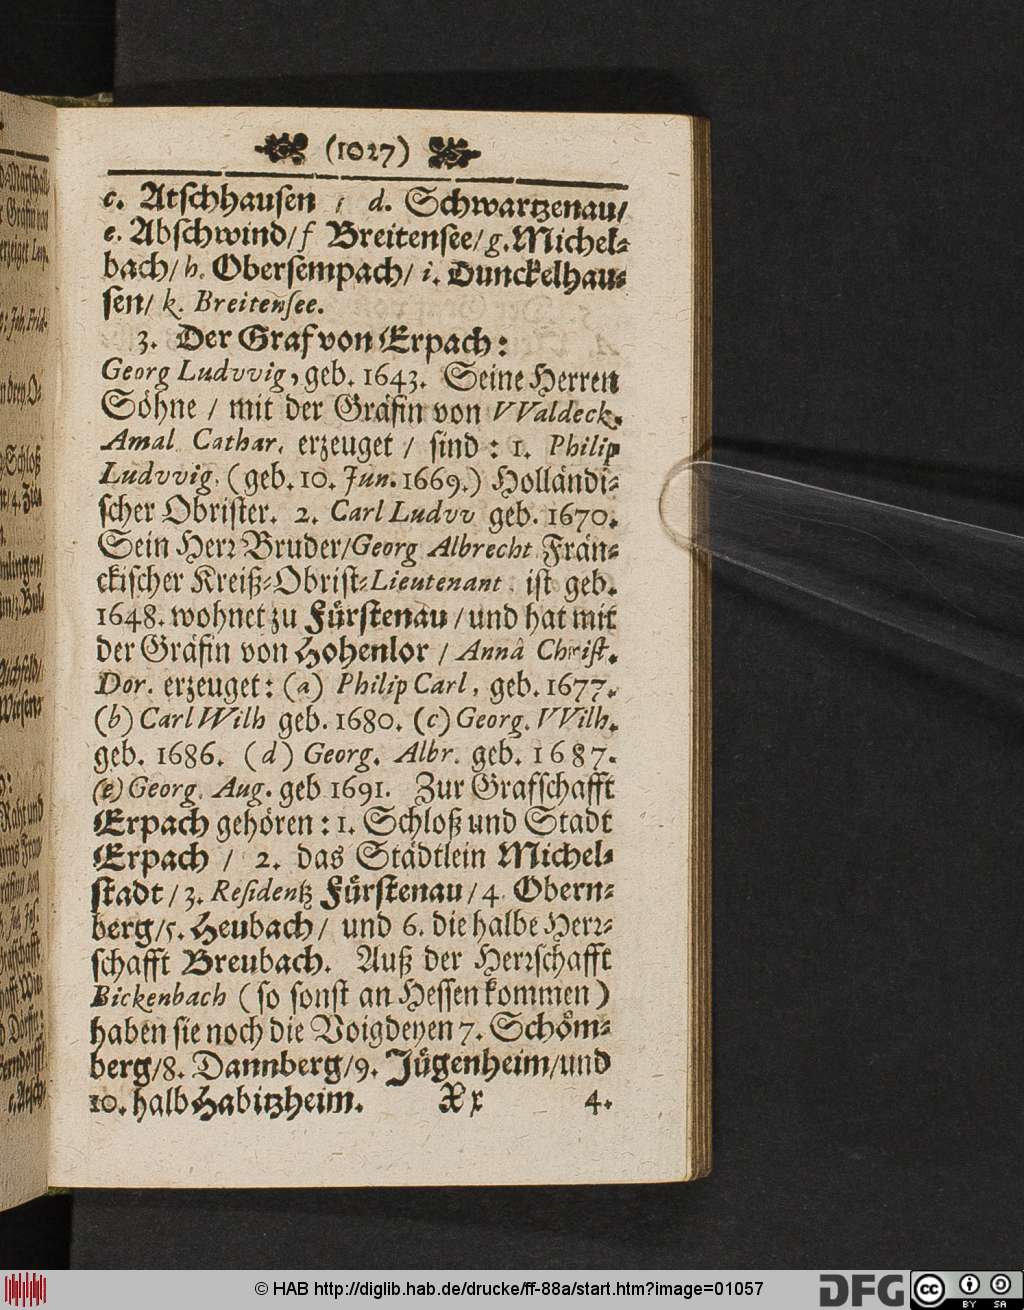 (1027)
c. Atschhausen / d. Schwartzenau/
e. Abschwind/ f Breitensee/ g. Michel⸗
bach/ h. Obersempach/ i. Dunckelhau⸗
sen/ k. Breitensee.
3. Der Graf von Erpach:
Georg Ludvvig, geb. 1643. Seine Herren
Söhne / mit der Gräfin von VValdeck.
Amal Cathar. erzeuget / sind : 1. Philip
Ludvvig. (geb. 10. Jun. 1669.) Holländi⸗
scher Obrister. 2. Carl Ludvv geb. 1670.
Sein Herr Bruder/Georg Albrecht Frän⸗
ckischer Kreiß⸗Obrist⸗Lieutenant. ist geb.
1648. wohnet zu Fürstenau / und hat mit
der Gräfin von Hohenlor / Annâ Christ.
Dor. erzeuget: (a) Philip Carl, geb. 1677.
(b) Carl Wilh geb. 1680. (c) Georg. VVilh.
geb. 1686. (d) Georg. Albr. geb. 1687.
(e) Georg. Aug. geb 1691. Zur Grafschafft
Erpach gehören : 1. Schloß und Stadt
Erpach / 2. das Städtlein Michel⸗
stadt / 3. Residentz Fürstenau / 4 Obern⸗
berg/5. Heubach/ und 6. die halbe Herr⸗
schafft Breubach. Auß der Herrschafft
Bickenbach (so sonst an Hessen kommen)
haben sie noch die Voigdeyen 7. Schöm⸗
berg/8. Dannberg/9. Jügenheim/und
10. halb Habitzheim. Xx 4.
© HAB http://diglib.hab.de/drucke/ff-88a/start.htm?image=01057
DFG cc BY SA